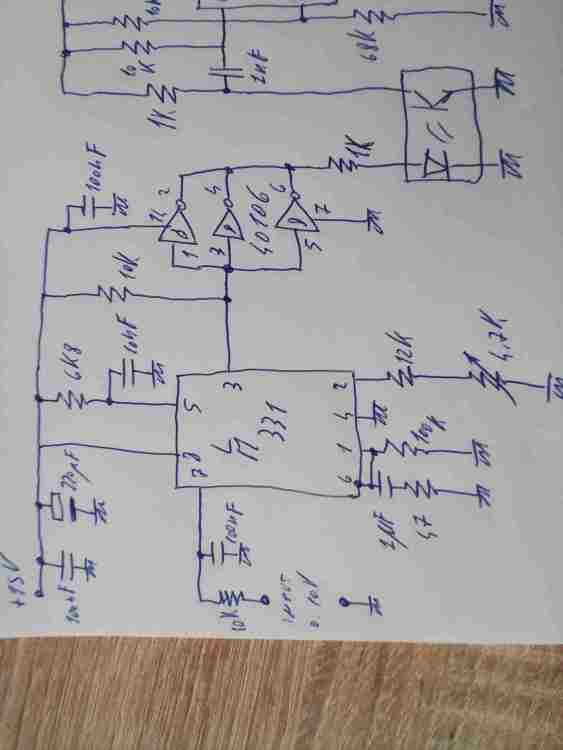 68K
1K
1K
100nF
14
2
1
3
4
40106
6
5
7
10K
6K8
10nF
5
3
2
4
1
6
8
7
331
12K
4,7K
100K
1µF
47
220µF
+15V
100nF
100nF
10K
INPUT
0..10V